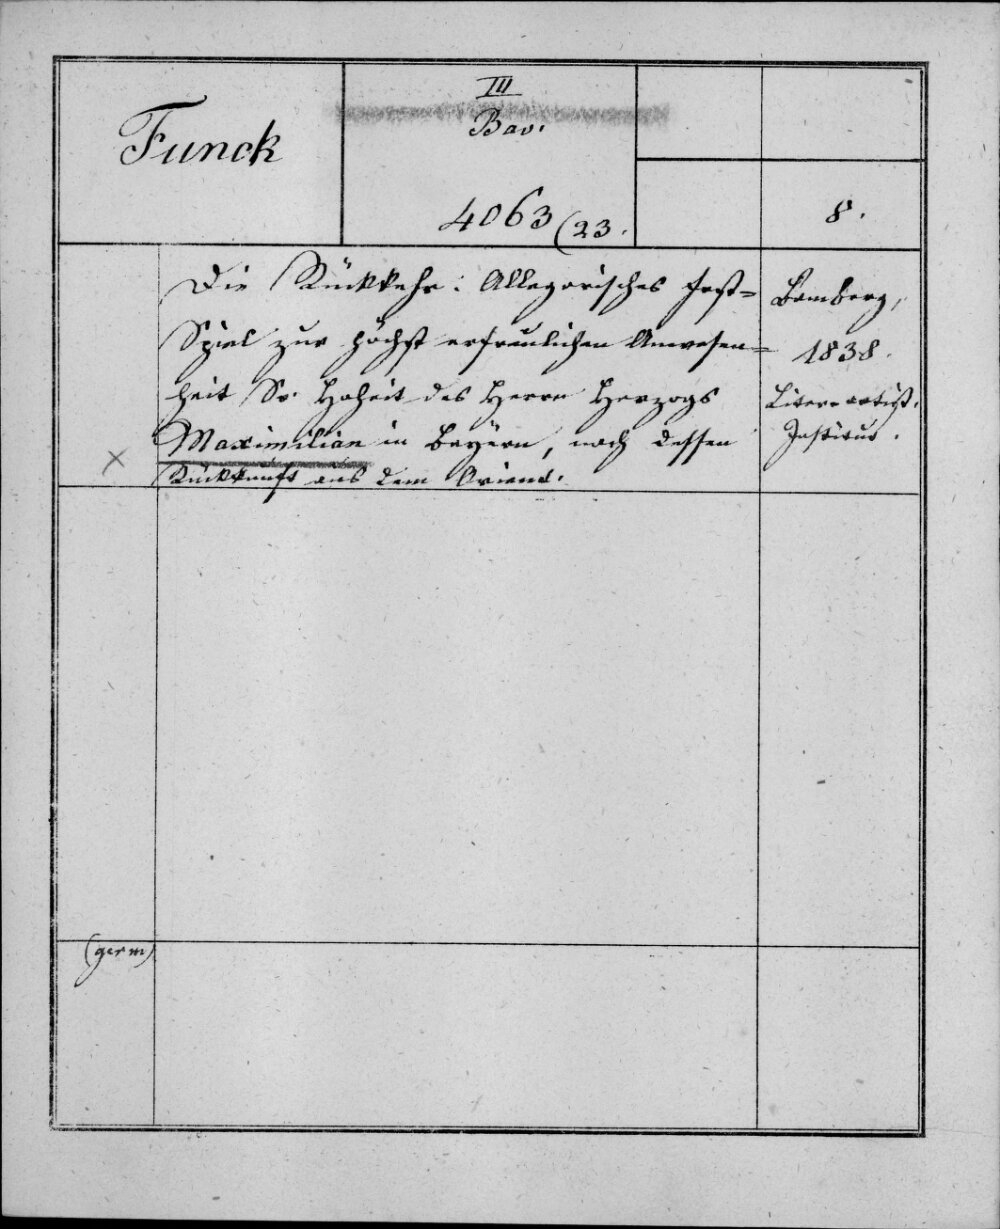 Funck
III
Bav.
4063 (23.
8.
Die Rückkehr: Allegorisches Fest=
Spiel zur höchst erfreulichen Anwesen=
heit Sr. Hoheit des Herrn Herzogs
Maximilian in Bayern, nach dessen
Rückkunft aus dem Orient.
Bamberg,
1838.
Liter. artist.
Institut.
×
(germ)